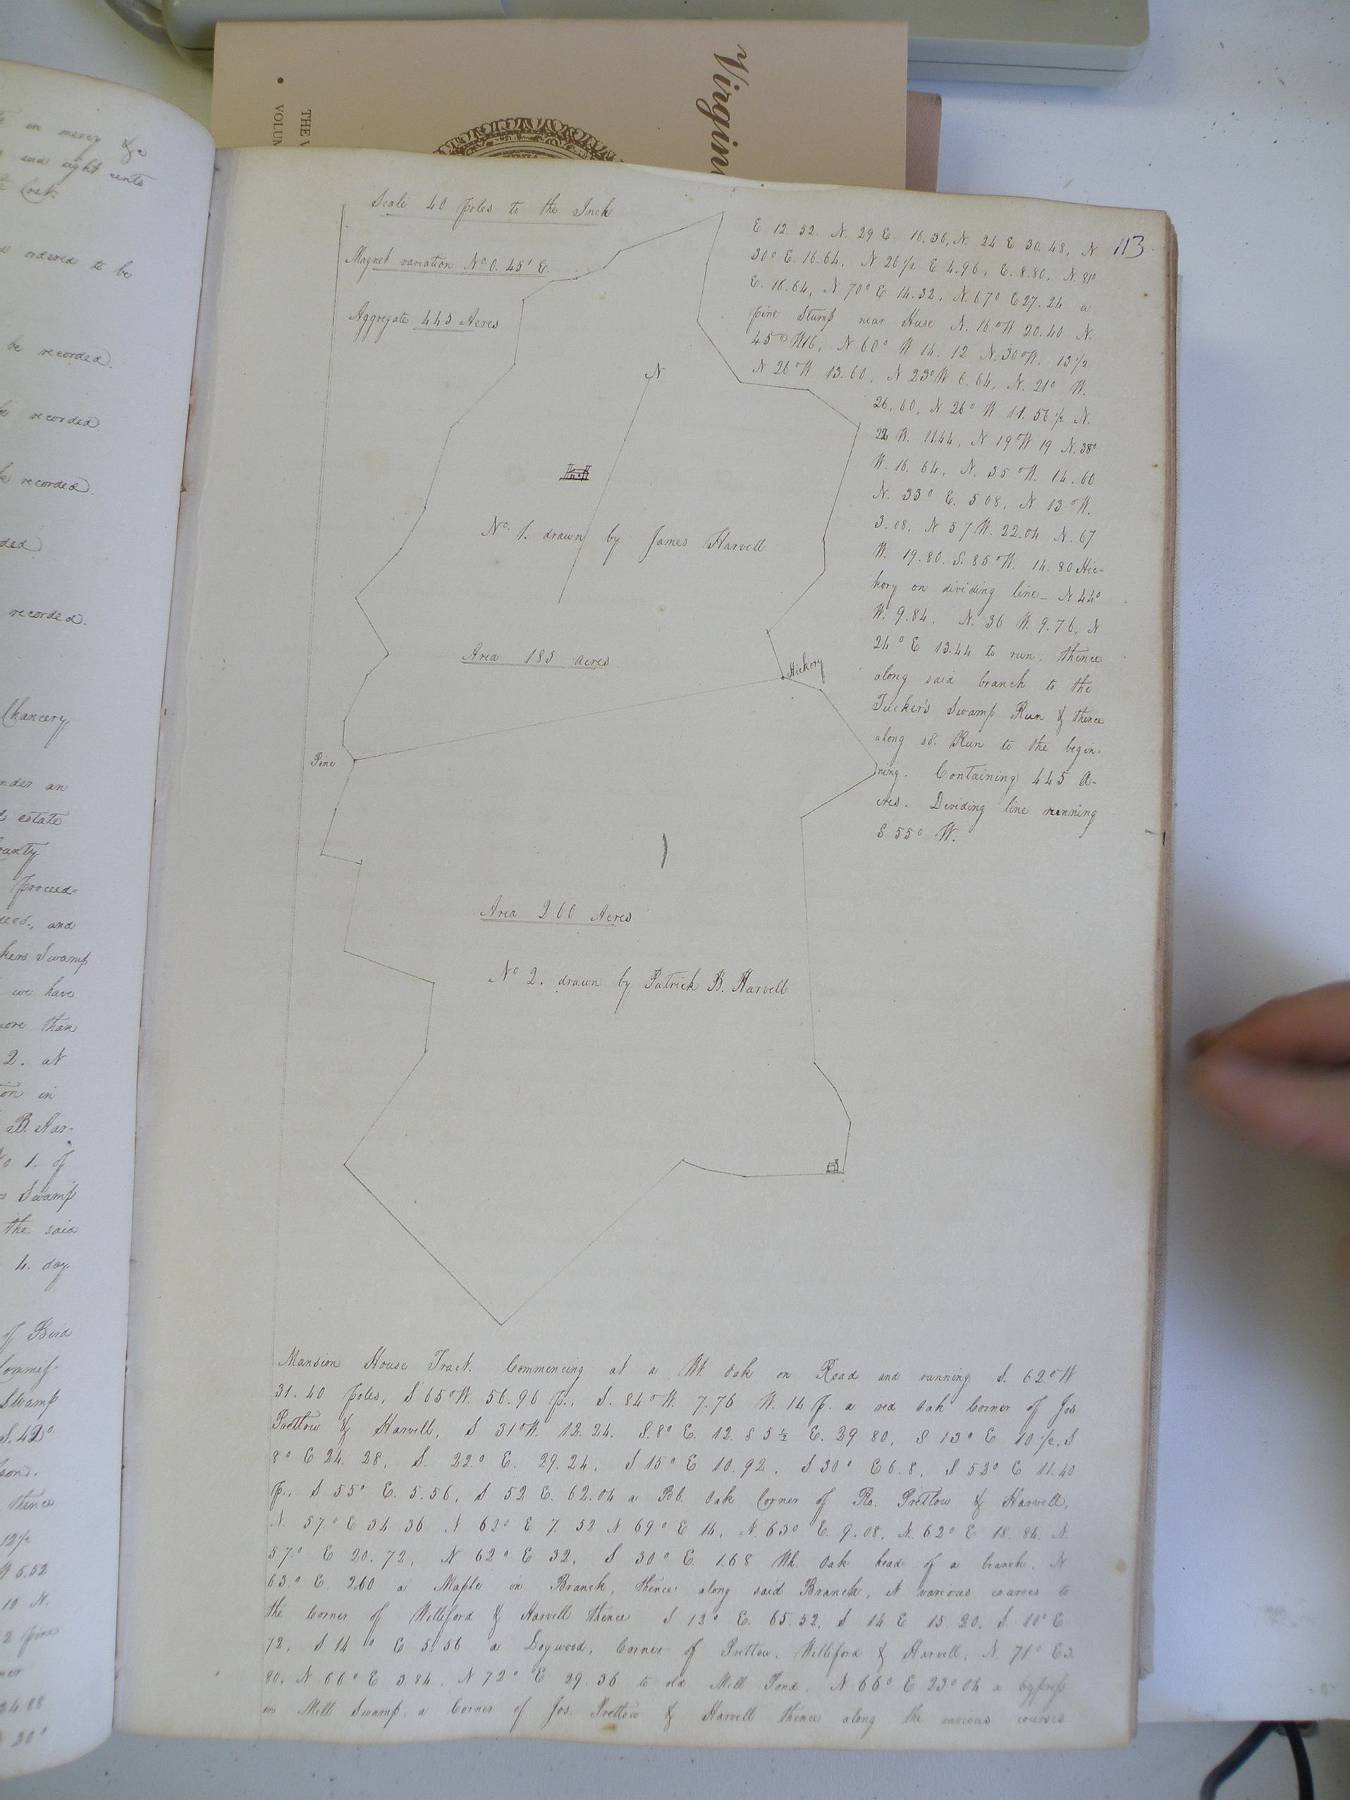 Virgin
THE V
VOLUM
113
Scale 40 poles to the Inch
Magnet variation No 0. 45' E.
Aggregate 445 Acres
N
No. 1. drawn by James Harvell
Area 185 acres
Hickory
Pine
Area 260 Acres
No 2. drawn by Patrick B. Harvell
E 12.32 N. 29 E. 16.36, N. 24 E 30.48, N
30° E. 16.64, N 26½ E 4.96, E. 8.80, N. 81°
E. 16.64, N. 70° E 14.32, N. 67° E 27.24 a
pine Stump near House N. 16° W 20.40 N.
45° W 16, N 60° W 14.12 N. 30° W. 13½
N 26° W 13.60, N 23° W 6.64, N. 21° W.
26.60, N 26° W 11.56½ N.
22 W. 11.44, N 19° W 19 N. 38°
W. 16.64, N. 35° W. 14.60
N. 33° E. 5.08, N 13° W.
3.08, N 57 W. 22.04 N. 67
W. 19.80. S. 85° W. 14.80 Hic-
kory on dividing line_ N 44°
W. 9.84, N. 36 W. 9.76, N
24° E 13.44 to run, thence
along said branch to the
Tucker's Swamp Run & thence
along sd. Run to the begin-
ning. Containing 445 A-
cres. Dividing line running
S 55° W.
Mansion House Tract. Commencing at a Wt Oak on Road and running S. 62° W
31.40 poles, S 65° W. 56.96 p., S. 84° W. 7.76 W. 14 p. a red Oak Corner of Jos
Pretlow & Harvell, S 31° W. 12.24. S. 8° E. 12. S 5½ E. 29.80, S 13° E 10½, S
8° E 24.28, S. 22° E. 29.24, S 15° E 10.92, S 30° E 6.8, S 53° E 11.40
p., S 55° E. 5.56, S 52 E. 62.04 a Oak Corner of Ro. Pretlow & Harvell,
N. 57° E 34.36 N 62° E 7.52 N 69° E 14, N. 63° E. 9.08, N. 62° E 18.84 N.
57° E 20.72, N 62° E 32, S 30° E. 1.68 Wh. Oak head of a branch, N
63° E. 2.60 a Maple in Branch, thence along said Branch, it various courses to
the Corner of Williford & Harvell thence S 12° E. 65.52, S 14 E 15.20, S 11° E
72, S 14° E 5.56 a Dogwood, Corner of Pretlow, Williford & Harvell, N. 71° E 3.
80, N 66° E 3.84, N 72° E 29.36 to old Mill Pond, N 66° E 23.04 a Cypress
in Mill Swamp, a Corner of Jos. Pretlow & Harvell thence along the various courses
on mercy &c
and eight cents
Cost.
ordered to be
be recorded
recorded
be recorded.
ded
recorded.
Chancery
under an
estate
County
proceed-
and
Swamp
we have
more than
2. at
in
B. Har-
No 1. of
Swamp
the said
4. day
of
Swamp
thence